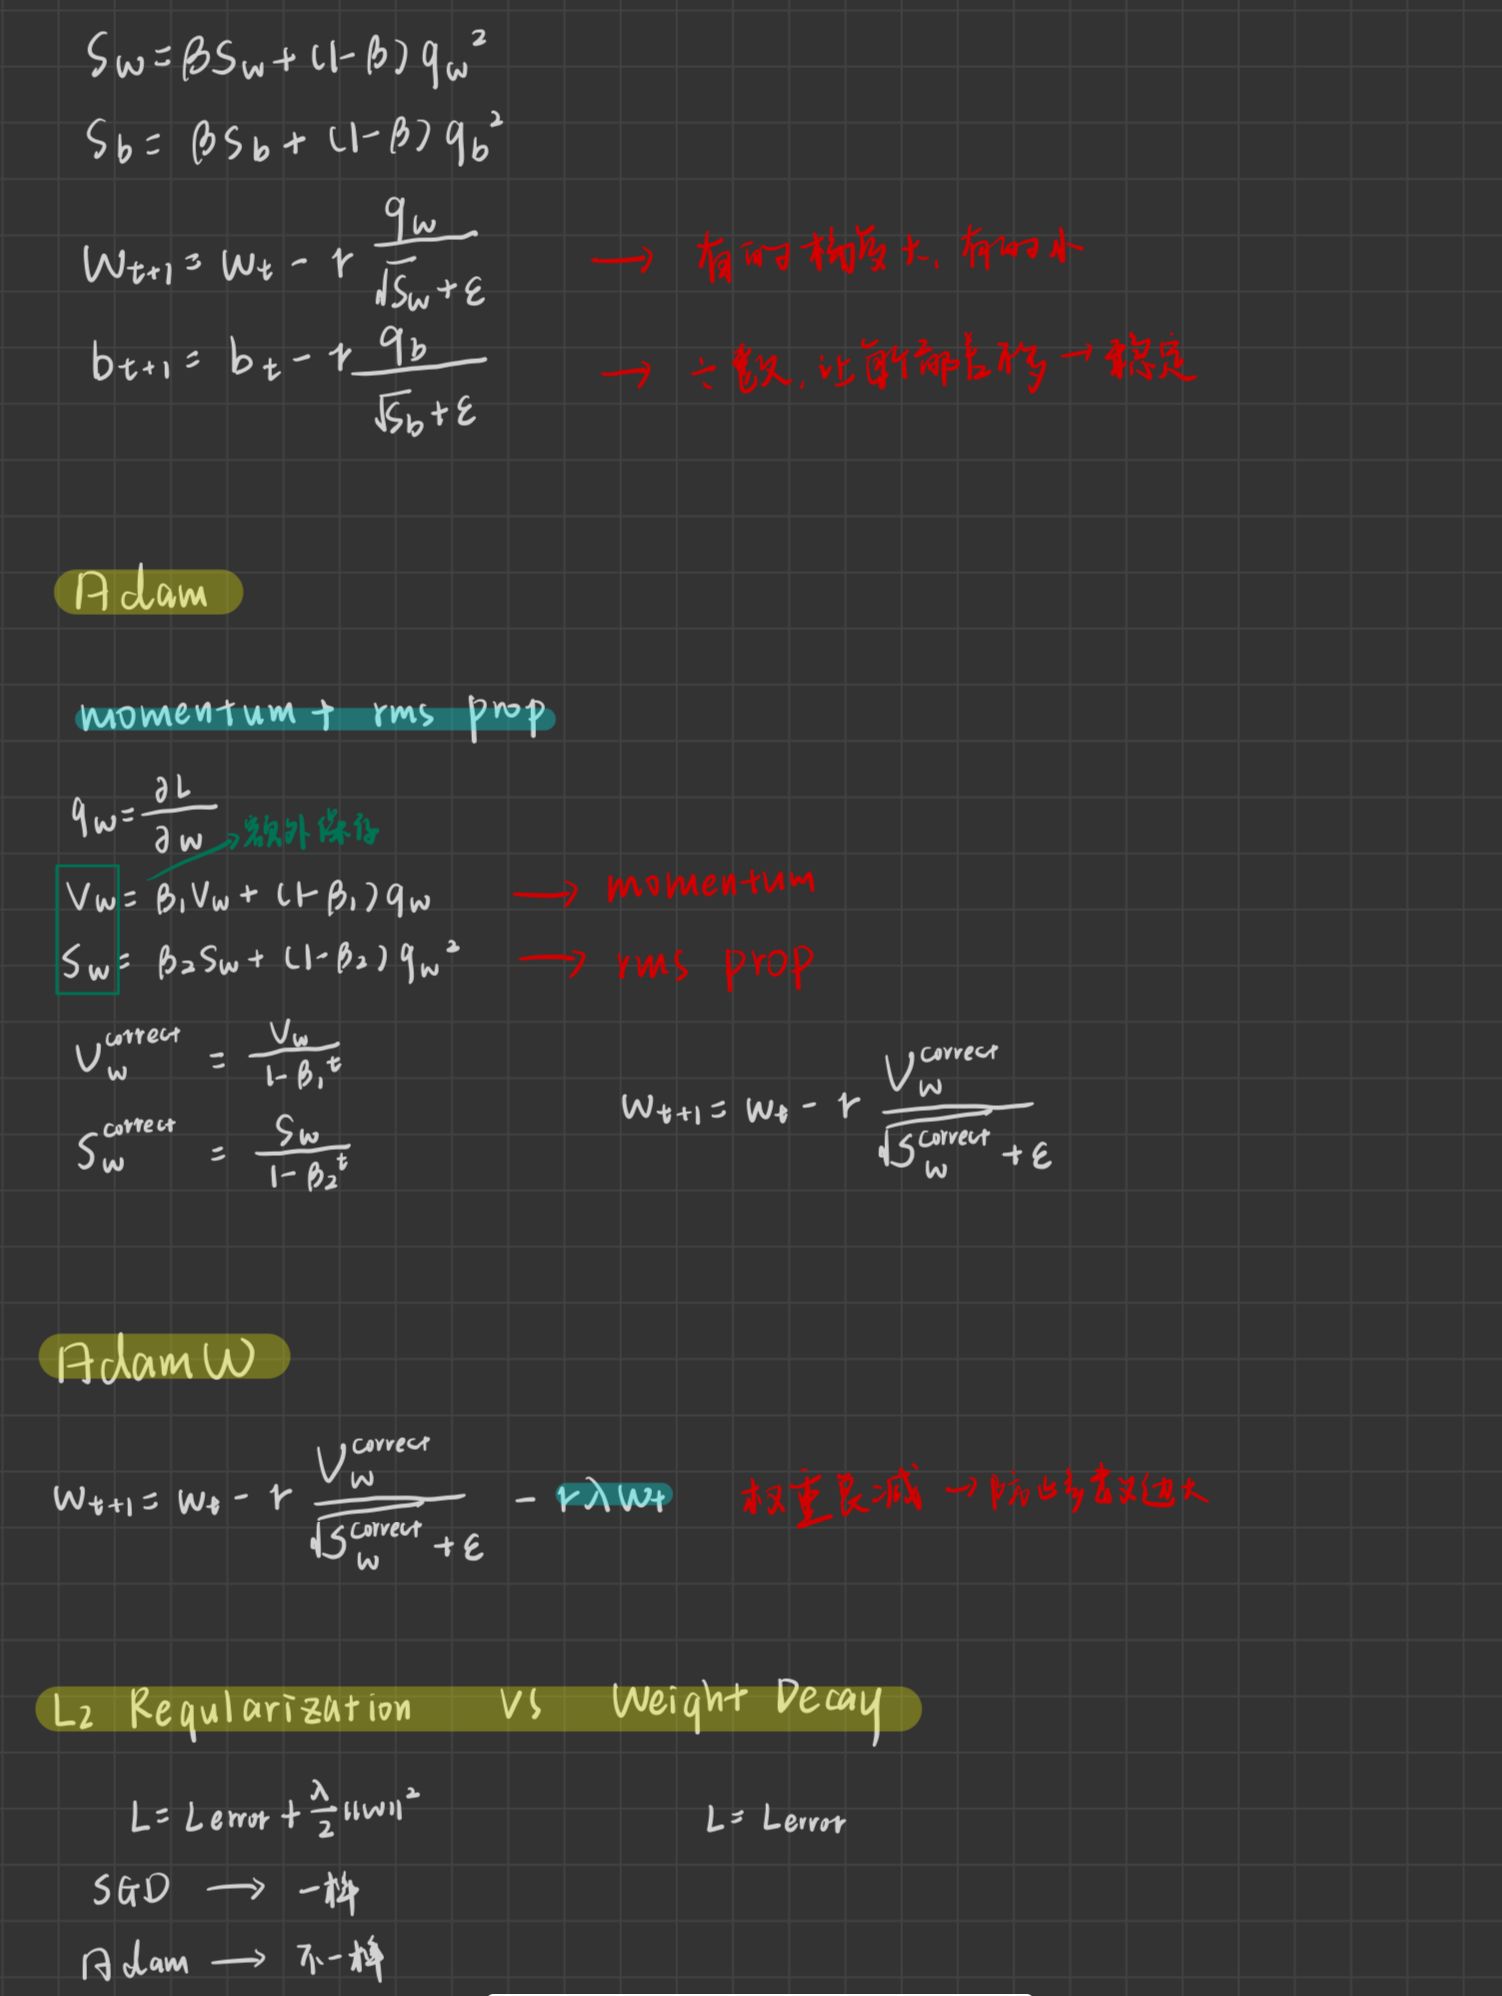 Sw = βSw + (1-β) qw²
Sb = βSb + (1-β) qb²
Wt+1 = Wt - r qw / (√Sw + ε) → 有的梯度大, 有的小
bt+1 = bt - r qb / (√Sb + ε) → ÷数, 让 →稳定
Adam
momentum + rms prop
qw = ∂L / ∂w
→额外保存
Vw = β₁Vw + (1-β₁) qw → momentum
Sw = β₂Sw + (1-β₂) qw² → rms prop
Vw^correct = Vw / (1-β₁^t)
Sw^correct = Sw / (1-β₂^t)
Wt+1 = Wt - r Vw^correct / (√Sw^correct + ε)
AdamW
Wt+1 = Wt - r Vw^correct / (√Sw^correct + ε) - rλWt 权重衰减 → 防止参数过大
L2 Regularization vs Weight Decay
L = Lerror + λ/2 ||W||² L = Lerror
SGD → 一样
Adam → 不一样